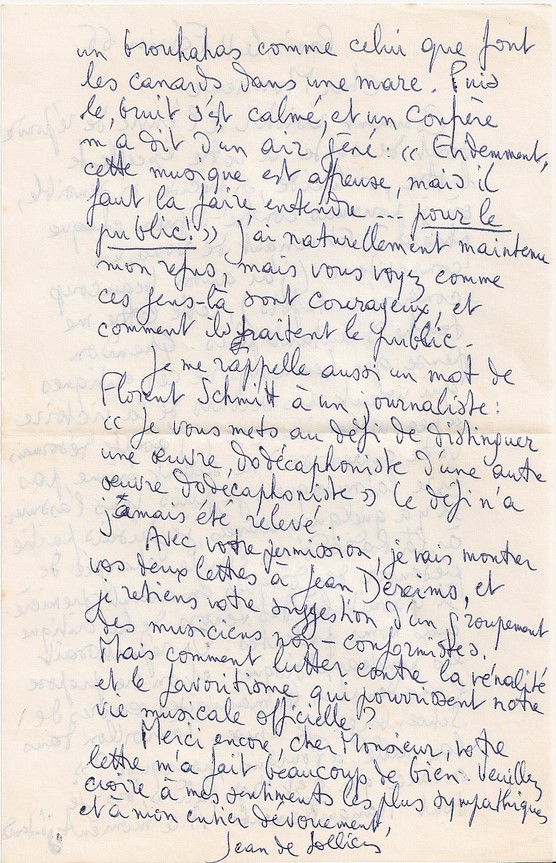 un brouhahas comme celui que font
les canards dans une mare. Puis
le bruit s'est calmé, et un Confère
m'a dit d'un air gêné : « Evidemment,
cette musique est affreuse, mais il
faut la faire entendre.... pour le
public! » j'ai naturellement maintenu
mon refus, mais vous voyez comme
ces gens-là sont courageux, et
comment ils traitent le public.
Je me rappelle aussi un mot de
Florent Schmitt à un journaliste :
« Je vous mets au défi de distinguer
une œuvre dodécaphoniste d'une autre
œuvre dodécaphoniste » Le défi n'a
jamais été relevé.
Avec votre permission, je vais montrer
vos deux lettres à Jean Dereimo, et
je retiens votre suggestion d'un groupement
des musiciens non conformistes.
Mais comment lutter contre la vénalité
et le favoritisme qui pourrissent notre
vie musicale officielle ?
Merci encore, cher Monsieur, votre
lettre m'a fait beaucoup de bien. Veuillez
croire à mes sentiments les plus sympathiques
et à mon entier dévouement,
Jean de Solliès